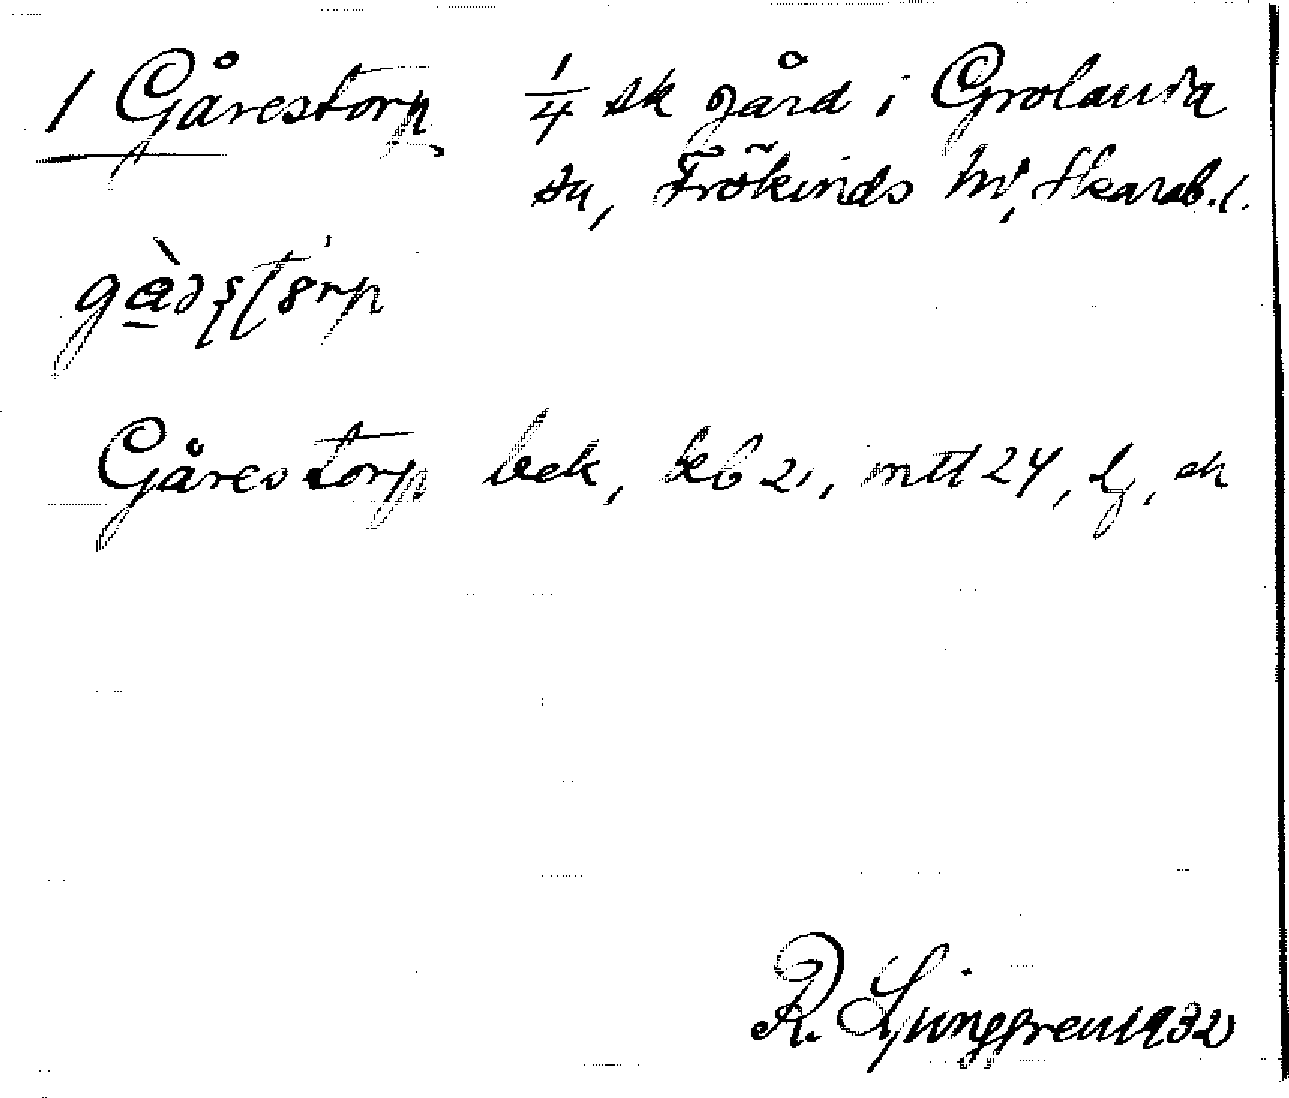 1 Gårestorp 1/4 sk gård i Grolanda
sn, Frökinds hd, Skarab. l.
Gårestorp bek, kb 21, mtl 24, lg, ek
R. Ljunggren 1932